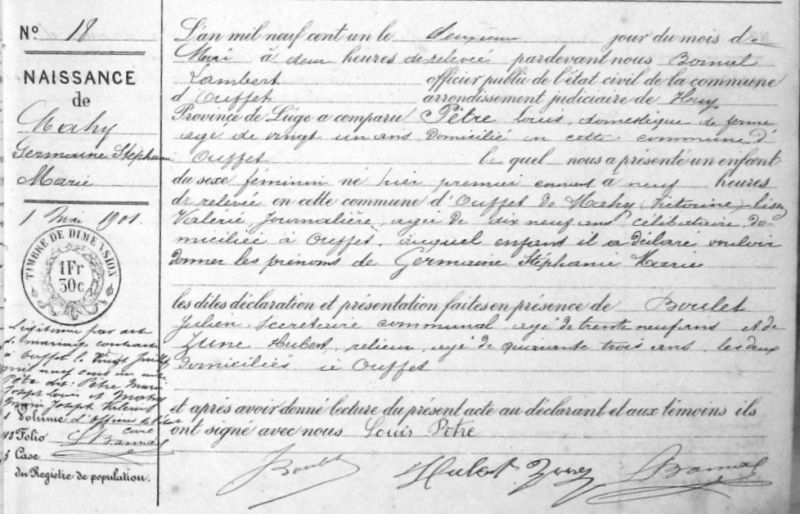 Nº 18
NAISSANCE
de
Mahy
Germaine Stéphanie
Marie
1 Mai 1901.
TIMBRE DE DIMENSION
1Fr
30c
Légitimé par acte
de mariage contracté
à Ouffet le
mil neuf cent
Pètre dit: Pètre Marie
Joseph Louis et Mahy
Marie Joseph
Volume d'Officier de l'état
12 Folio civil
5 Case LBornal
du Registre de population.
L'an mil neuf cent un le deuxième jour du mois de
Mai à deux heures de relevée pardevant nous Bornal
Lambert officier public de l'état civil de la commune
d'Ouffet arrondissement judiciaire de Huy
Province de Liège a comparu Pètre Louis, domestique de ferme
agé de vingt un ans domicilié en cette commune d'
Ouffet lequel nous a présenté un enfant
du sexe féminin né hier premier courant à neuf heures
de relevée en cette commune d'Ouffet de Mahy (Victorine)
Valérie, Journalière, agée de dix neuf ans, célibataire, do-
miciliée à Ouffet, auquel enfant il a déclaré vouloir
donner les prénoms de Germaine Stéphanie Marie
les dites déclaration et présentation faites en présence de Boulet
Julien, Secrétaire communal agé de trente neuf ans et de
Zune Hubert, relieur, agé de quarante trois ans, les deux
domiciliés à Ouffet
et après avoir donné lecture du présent acte au déclarant et aux témoins ils
ont signé avec nous Louis Pètre
JBoulet Hubert Zune LBornal